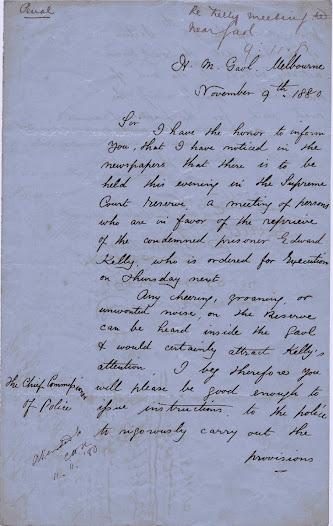 Penal
Re Kelly meeting
near Gaol
9.11.80
H. M. Gaol. Melbourne
November 9th. 1880
Sir
I have the honor to inform
You, that I have noticed in the
newspapers that there is to be
held this evening in the Supreme
Court reserve, a meeting of persons
who are in favor of the reprieve
of the condemned prisoner Edward
Kelly who is ordered for Execution
on Thursday next.
Any cheering, groaning, or
unwonted noise, on the Reserve
can be heard inside the Gaol
& would certainly attract Kelly's
attention. I beg therefore you
will please be good enough to
issue instructions to the police
to rigorously carry out the
provisions
The Chief Commissioner
of Police
Attended to